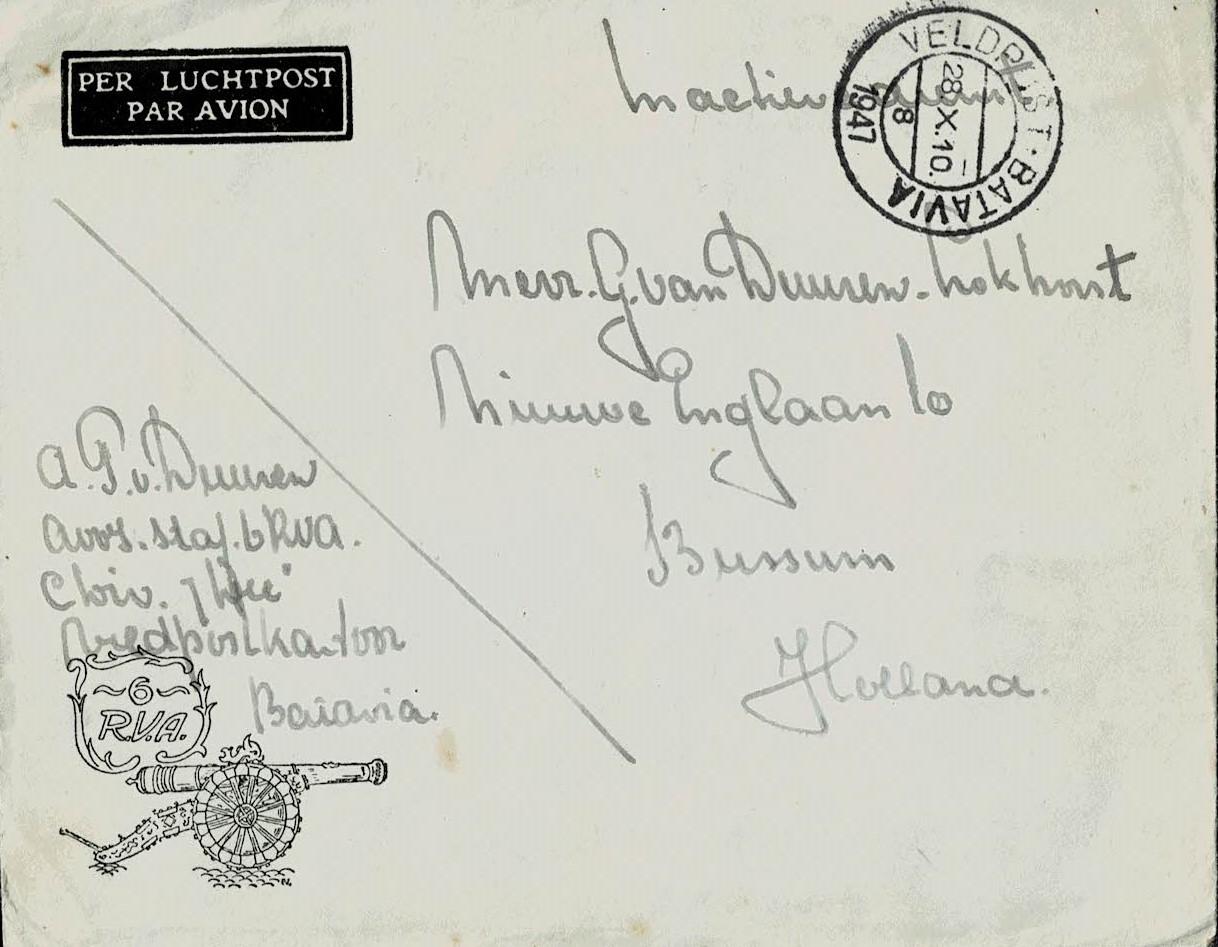 PER LUCHTPOST
PAR AVION
VELDPOST-BATAVIA
28.X.10.
8
1947
Mevr. G. van Duuren-Lokhorst
Nieuwe Englaan 10
Bussum
Holland.
A.G.v.Duuren
staf. 6 RVA.
7 Dec
Veldpostkantoor
Batavia.
~6~
R.V.A.